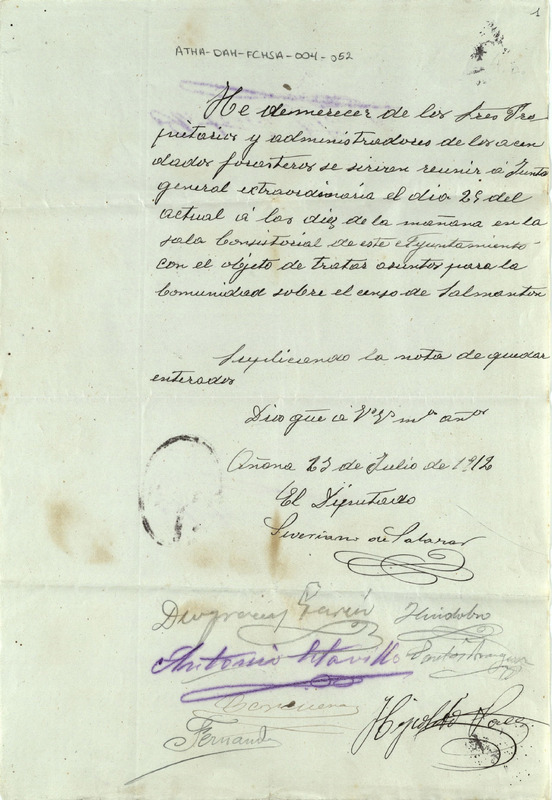 1
ATHA-DAH-FCHSA-004-052
He demerecer de los Sres Pro
pietarios y administradores de los acen
dados forasteros se sirvan reunir á Junta
general extraordinaria el dia 25 del
actual á las diez de la mañana en la
sala Consistorial de este Ayuntamiento
con el objeto de tratar asuntos para la
Comunidad sobre el censo de Salmantón
Suplicando la nota de quedar
enterados
Dios gûe á Vs Vs ms años
Añana 23 de Julio de 1912
El Diputado
Severiano de Salazar
Deogracias García
Huidobro
Antonio
Fernando
Hipolito